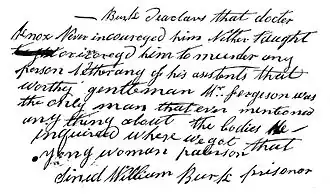 Burk deaclars that docter
Knox Never incoureged him Nether taught
or incoregd him to murder any
person Nether any of his asistants that
worthy gentleman Mr. Fergeson was
the only man that ever mentioned
any thing about the bodies He
inquired where we got that
yong woman paterson
Sined William Burk prisoner